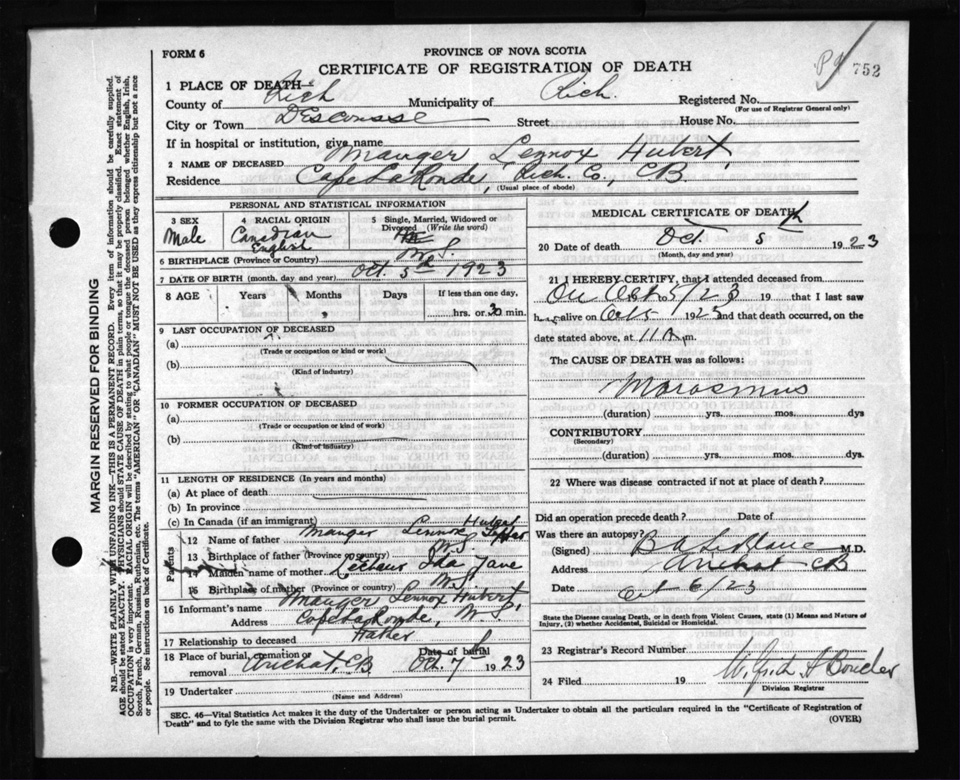 FORM 6
PROVINCE OF NOVA SCOTIA
CERTIFICATE OF REGISTRATION OF DEATH
752
1 PLACE OF DEATH—
County of Rich Municipality of Rich. Registered No.
(For use of Registrar General only)
City or Town Descousse Street House No.
If in hospital or institution, give name
2 NAME OF DECEASED Mauger Lennox Hubert
Residence Cape LaRonde, Rich. Co., CB.
(Usual place of abode)
PERSONAL AND STATISTICAL INFORMATION
3 SEX 4 RACIAL ORIGIN 5 Single, Married, Widowed or Divorced (Write the word)
Male Canadian English
6 BIRTHPLACE (Province or Country) N.S.
7 DATE OF BIRTH (month, day and year) Oct. 5th 1923
8 AGE Years Months Days If less than one day,
hrs. or 30 min.
9 LAST OCCUPATION OF DECEASED
(a)
(Trade or occupation or kind or work)
(b)
(Kind of industry)
10 FORMER OCCUPATION OF DECEASED
(a)
(Trade or occupation or kind or work)
(b)
(Kind of industry)
11 LENGTH OF RESIDENCE (In years and months)
(a) At place of death
(b) In province
(c) In Canada (if an immigrant)
Parents
12 Name of father Mauger Lennox Hubert
13 Birthplace of father (Province or country) N.S.
14 Maiden name of mother Ida Jane
15 Birthplace of mother (Province or country) N.S.
16 Informant's name Mauger Lennox Hubert
Address Cape LaRonde, N.S.
17 Relationship to deceased Father
18 Place of burial, cremation or removal Arichat, CB Date of burial Oct. 7th 1923
19 Undertaker
(Name and Address)
MEDICAL CERTIFICATE OF DEATH
20 Date of death Oct 5 1923
(Month, day and year)
21 I HEREBY CERTIFY, that I attended deceased from
On Oct 5/23 19 that I last saw
h alive on Oct 5 1923 and that death occurred, on the
date stated above, at 11 A m.
The CAUSE OF DEATH was as follows:
Marasmus
(duration) yrs. mos. dys
CONTRIBUTORY
(Secondary)
(duration) yrs. mos. dys.
22 Where was disease contracted if not at place of death?
Did an operation precede death? Date of
Was there an autopsy?
(Signed) B A LeBlanc M.D.
Address Arichat CB
Date Oct 6/23
State the Disease causing Death, or in death from Violent Causes, state (1) Means and Nature of
Injury, (2) whether Accidental, Suicidal or Homicidal.
23 Registrar's Record Number
24 Filed 19
Division Registrar
SEC. 46—Vital Statistics Act makes it the duty of the Undertaker or person acting as Undertaker to obtain all the particulars required in the "Certificate of Registration of
Death" and to fyle the same with the Division Registrar who shall issue the burial permit.
(OVER)
MARGIN RESERVED FOR BINDING
N.B.—WRITE PLAINLY WITH UNFADING INK—THIS IS A PERMANENT RECORD. Every item of information should be carefully supplied.
AGE should be stated EXACTLY. PHYSICIANS should STATE CAUSE OF DEATH in plain terms, so that it may be properly classified. Exact statement of
OCCUPATION is very important. RACIAL ORIGIN will be described by stating to what people or tongue the deceased person belonged whether English, Irish,
Scotch, French, German, Russian, Ruthenian, etc. The terms "AMERICAN" OR "CANADIAN" MUST NOT BE USED as they express citizenship but not a race
or people. See instructions on back of Certificate.